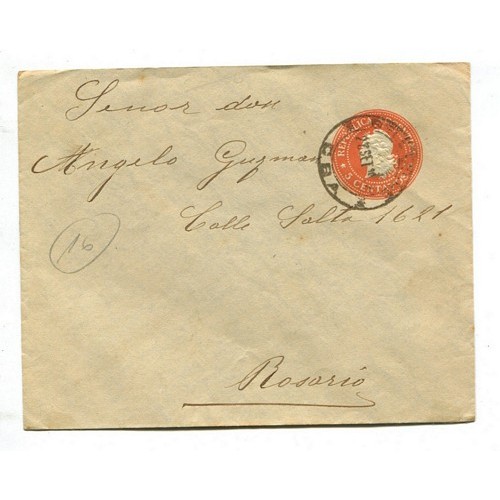 Senor don
Angelo Guzman
Calle Salta 1621
Rosario
16
REPUBLICA
5 CENTAVOS
CBA